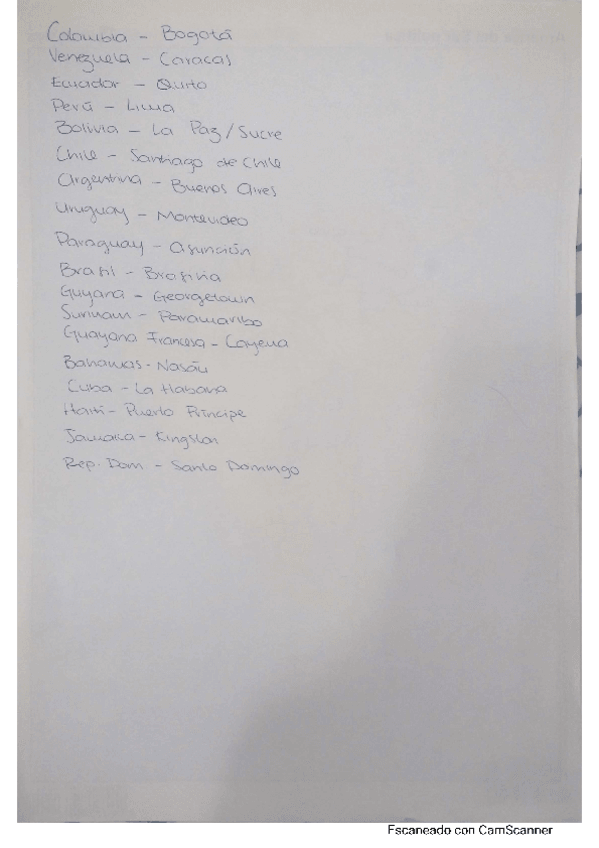 Colombia - Bogotá
Venezuela - Caracas
Ecuador - Quito
Perú - Lima
Bolivia - La Paz/Sucre
Chile - Santiago de Chile
Argentina - Buenos Aires
Uruguay - Montevideo
Paraguay - Asunción
Brasil - Brasilia
Guyana - Georgetown
Surinam - Paramaribo
Guayana Francesa - Cayena
Bahamas - Nasáu
Cuba - La Habana
Haití - Puerto Príncipe
Jamaica - Kingston
Rep. Dom - Santo Domingo
Escaneado con CamScanner